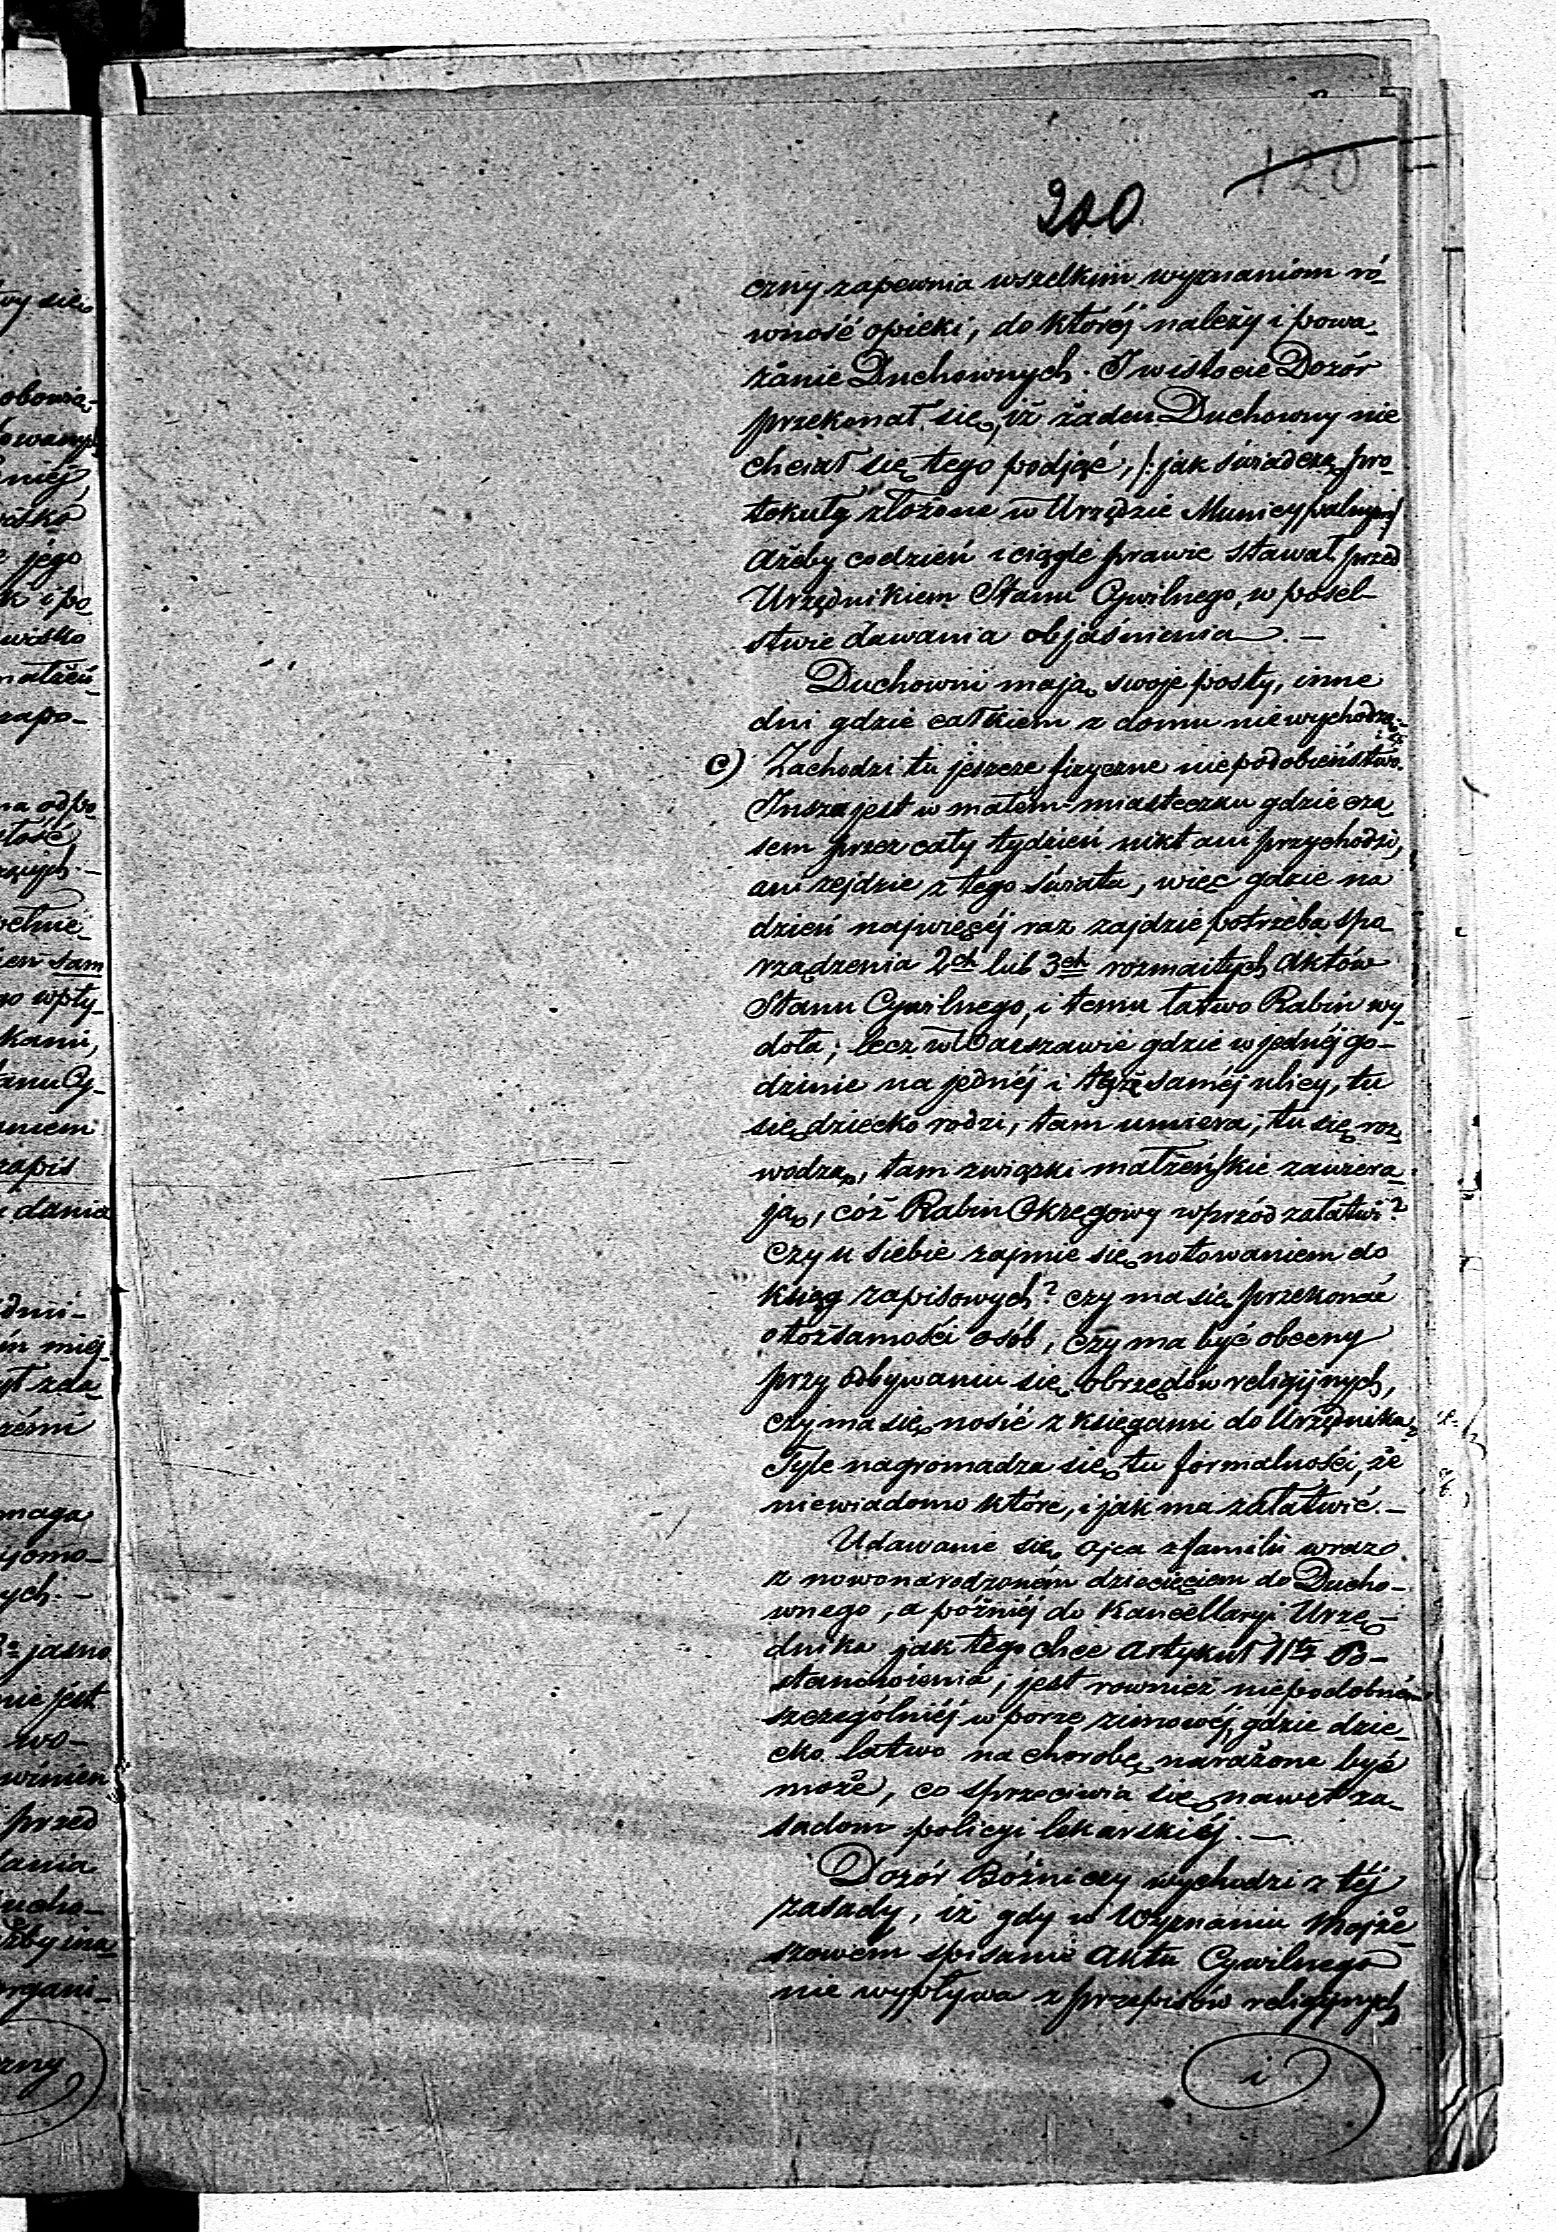 120
210
czny zapewnia wszelkim wyznaniom ró-
wność opieki, do któréj należy i powa-
żanie Duchownych. I w istocie Dozór
przekonał się, iż żaden Duchowny nie
chciał się tego podjąć, /: jak świadczą pro-
tokuły złożone w Urzędzie Municypalnym/
ażeby codzień i ciągle prawie stawał przed
Urzędnikiem Stanu Cywilnego, w posel-
stwie dawania objaśnienia. —
Duchowni mają swoje posty, inne
dni gdzie całkiem z domu niewychodzą.
c) Zachodzi tu jeszcze fizyczne niepodobieństwo.
Insza jest w małém miasteczku gdzie cza-
sem przez cały tydzień nikt ani przychodzi,
ani zejdzie z tego świata, więc gdzie na
dzień najwięcéj raz zajdzie potrzeba spo-
rządzenia 2ch lub 3ch rozmaitych Aktów
Stanu Cywilnego, i temu łatwo Rabin wy-
doła; lecz w Warszawie gdzie w jednéj go-
dzinie na jednéj i téjże saméj ulicy, tu
się dziecko rodzi, tam umiera, tu się roz-
wodzą, tam związki małżeńskie zawiera-
ją, cóż Rabin Okręgowy wprzód załatwi?
czy u siebie zajmie się notowaniem do
ksiąg zapisowych? czy ma się przekonać
o tożsamości osób, czy ma być obecny
przy odbywaniu się obrzędów religijnych,
czy ma się nosić z księgami do Urzędnika?
Tyle nagromadza się tu formalności, że
niewiadomo które, i jak ma załatwić. —
Udawanie się ojca z familii wraz
z nowonarodzoném dziecięciem do Ducho-
wnego, a późniéj do Kancellaryi Urzę-
dnika jak tego chce Artykuł 11ty Po-
stanowienia, jest również niepodobném
szczególniéj w porze zimowéj, gdzie dzie-
cko łatwo na chorobę narażone być
może, co sprzeciwia się nawet za-
sadom policyi lekarskiéj. —
Dozór Bóżniczy wychodzi z téj
zasady, iż gdy w Wyznaniu Mojże-
szowém spisanie Aktu Cywilnego
nie wypływa z przepisów religijnych
i